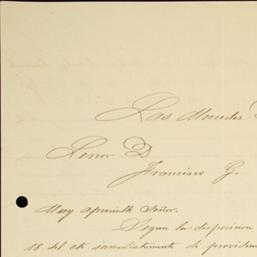 Las Mercedes
Senor D
Francisco G.
Muy apreciable Señor.
Segun la disposicion
18 del cte inmediatamente de